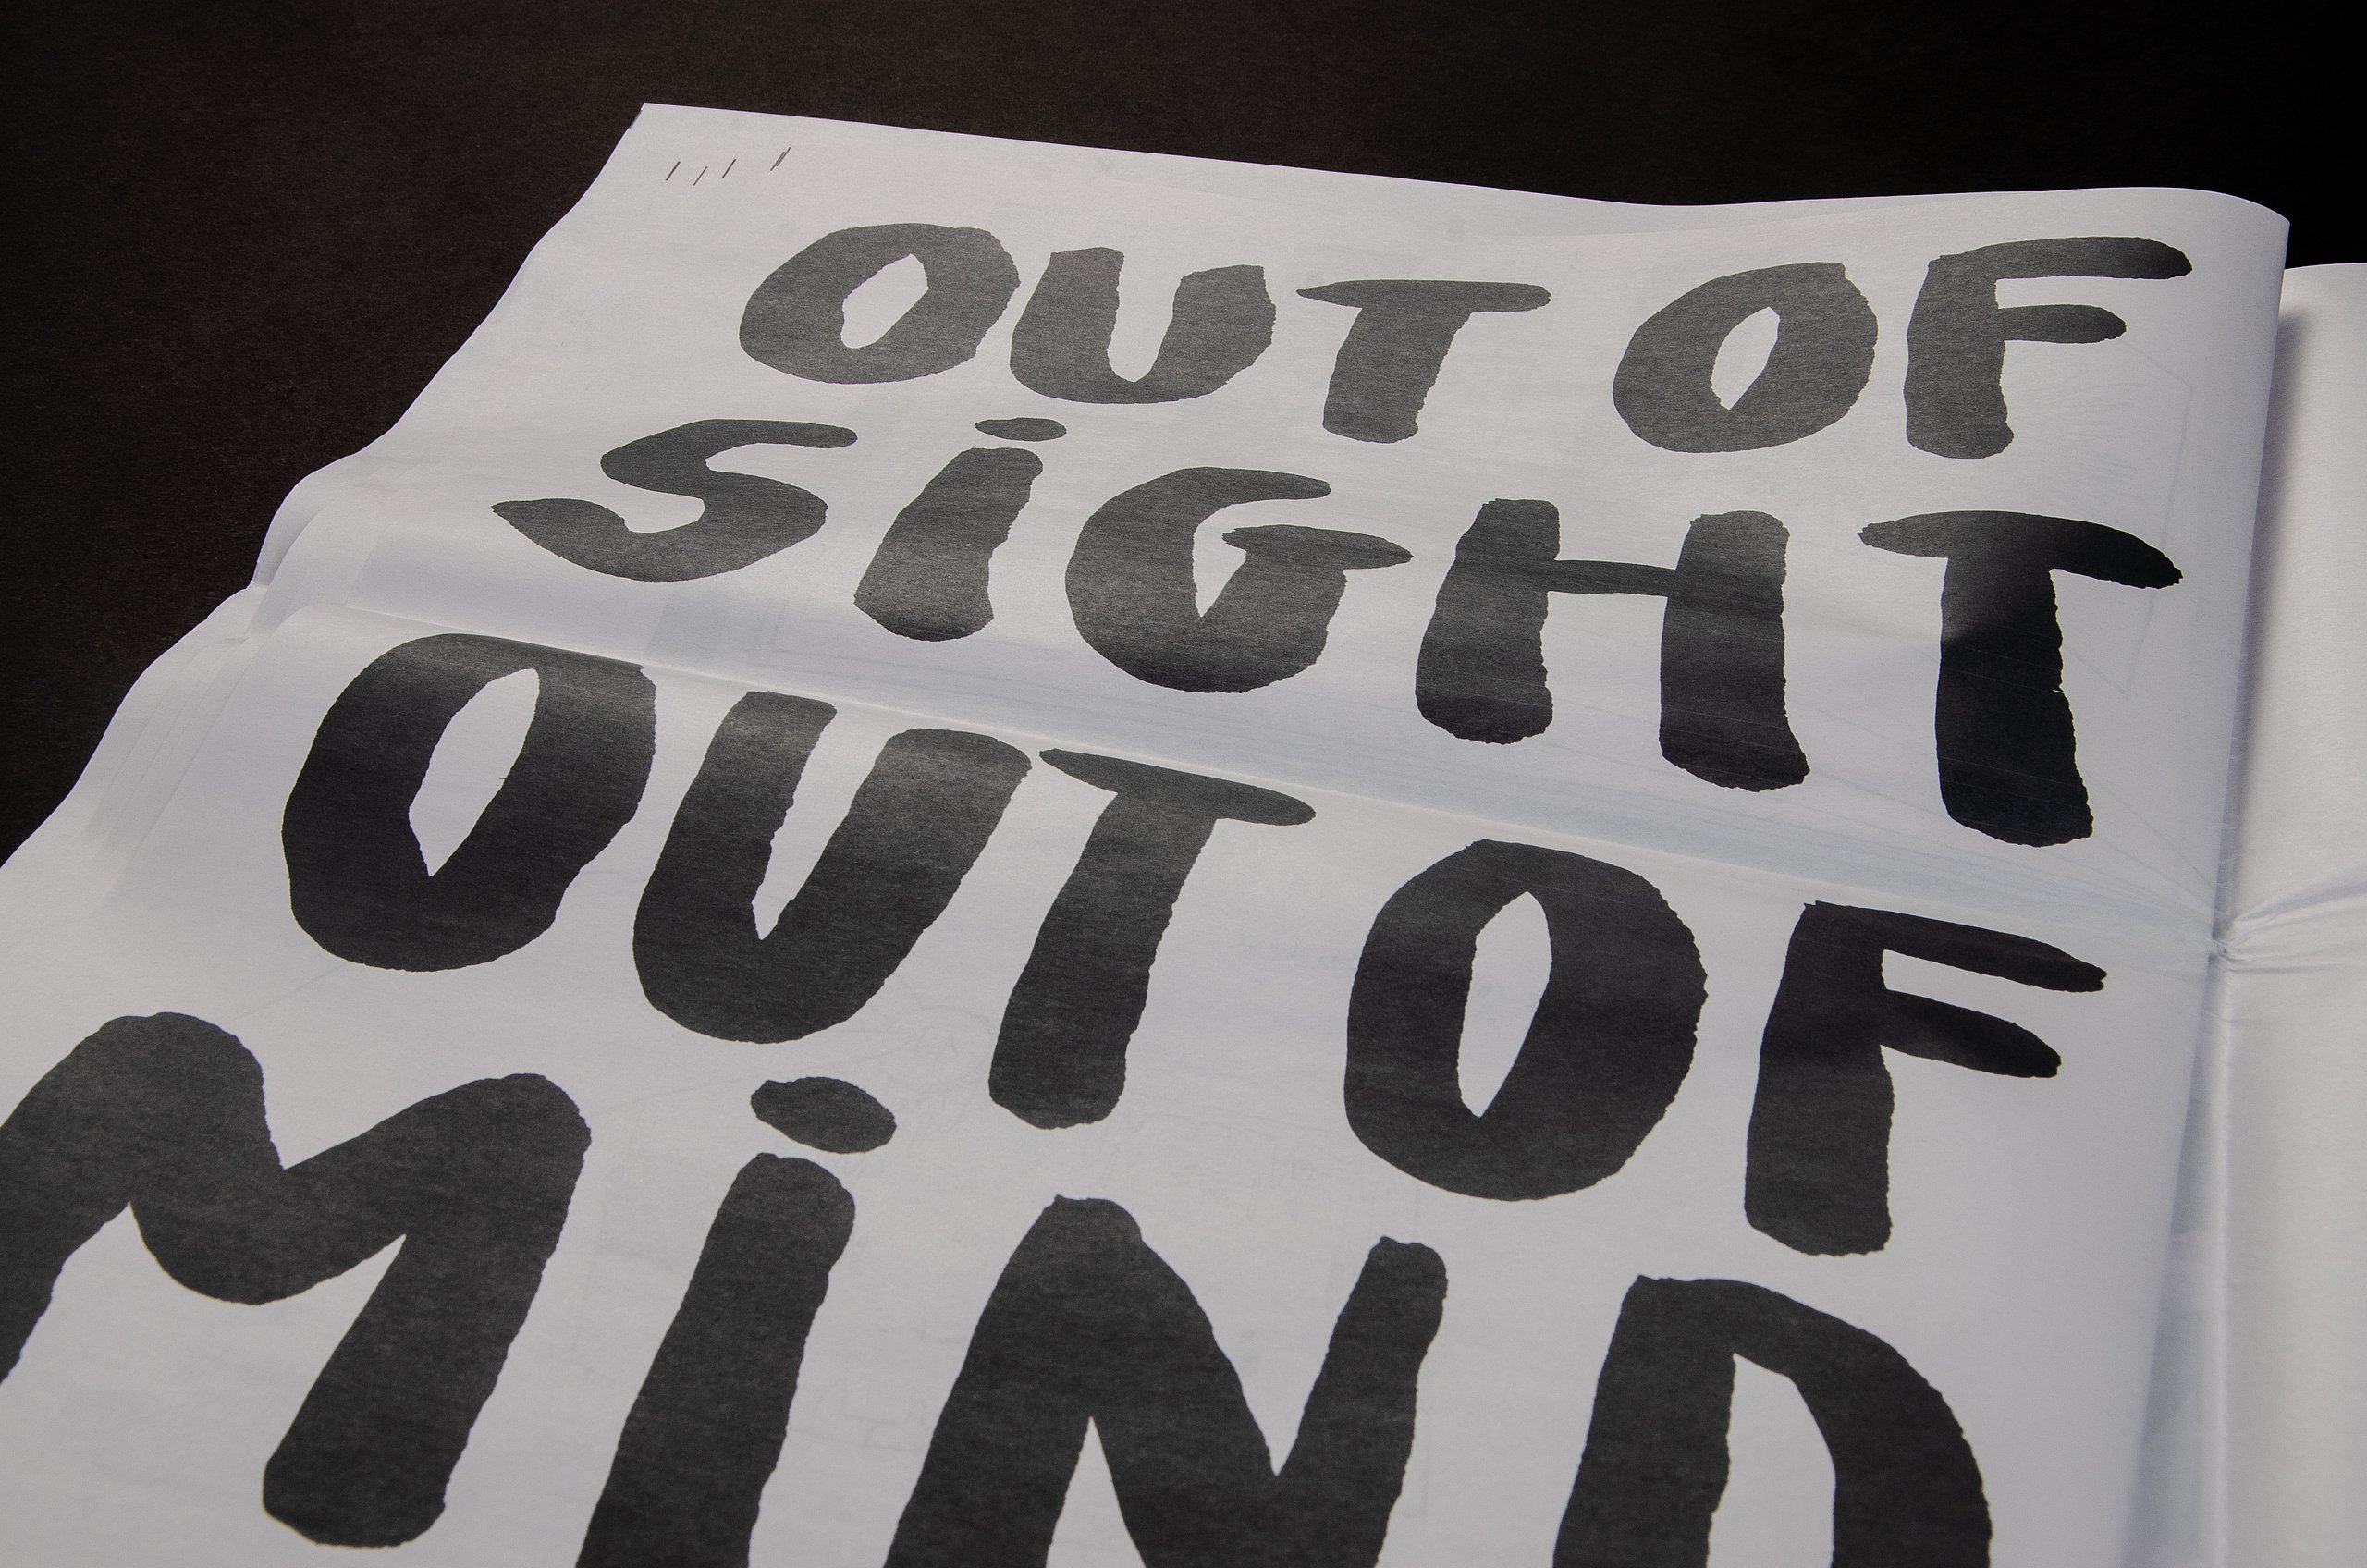 OUT OF
SiGHT
OUT OF
MiND